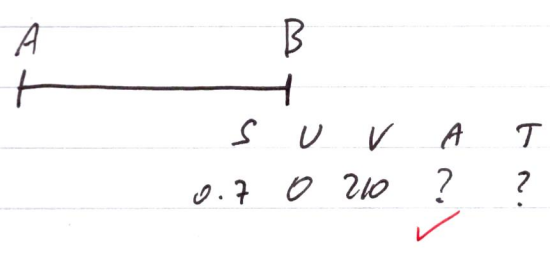 A B
S U V A T
0.7 0 210 ? ?